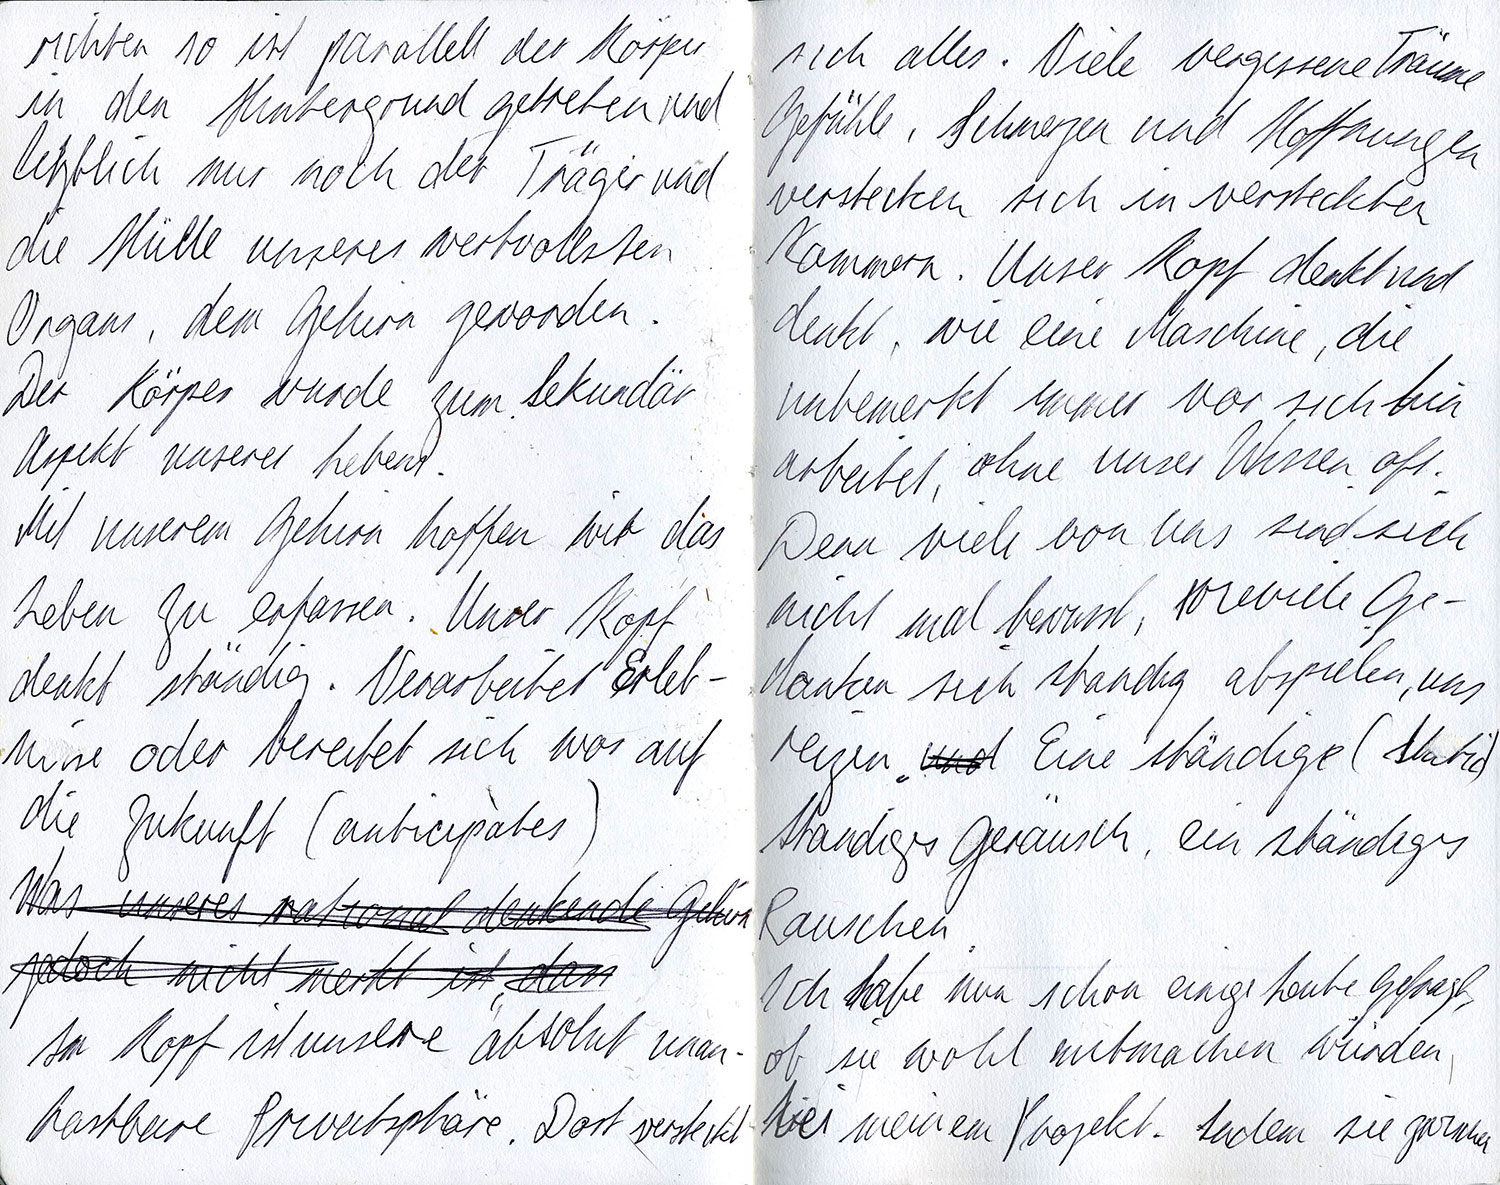 richten so ist parallell der Körper
in den Hintergrund getreten und
letztlich nur noch der Träger und
die Hülle unseres wertvollsten
Organs, dem Gehirn geworden.
Der Körper wurde zum Sekundär
Aspekt unseres Lebens.
Mit unserem Gehirn hoffen wir das
Leben zu erfassen. Unser Kopf
denkt ständig. Verarbeitet Erleb-
nisse oder bereitet sich vor auf
die Zukunft (anticipates)
Was unseres rational denkende Gehirn
jedoch nicht merkt ist, dass
Im Kopf ist unsere absolut unan-
tastbare Privatsphäre. Dort versteckt
sich alles. Viele vergessene Träume
Gefühle, Schmerzen und Hoffnungen
verstecken sich in versteckten
Kammern. Unser Kopf denkt und
denkt, wie eine Maschine, die
unbemerkt immer vor sich hin
arbeitet, ohne unser Wissen oft.
Denn viele von uns sind sich
nicht mal bewusst, wieviele Ge-
danken sich ständig abspielen, uns
reizen. und Eine ständige (
Ständiges Geräusch, ein ständiges
Rauschen.
Ich habe nun schon einige Leute gefragt,
ob sie wohl mitmachen würden,
bei meinem Projekt. Indem sie zwischen